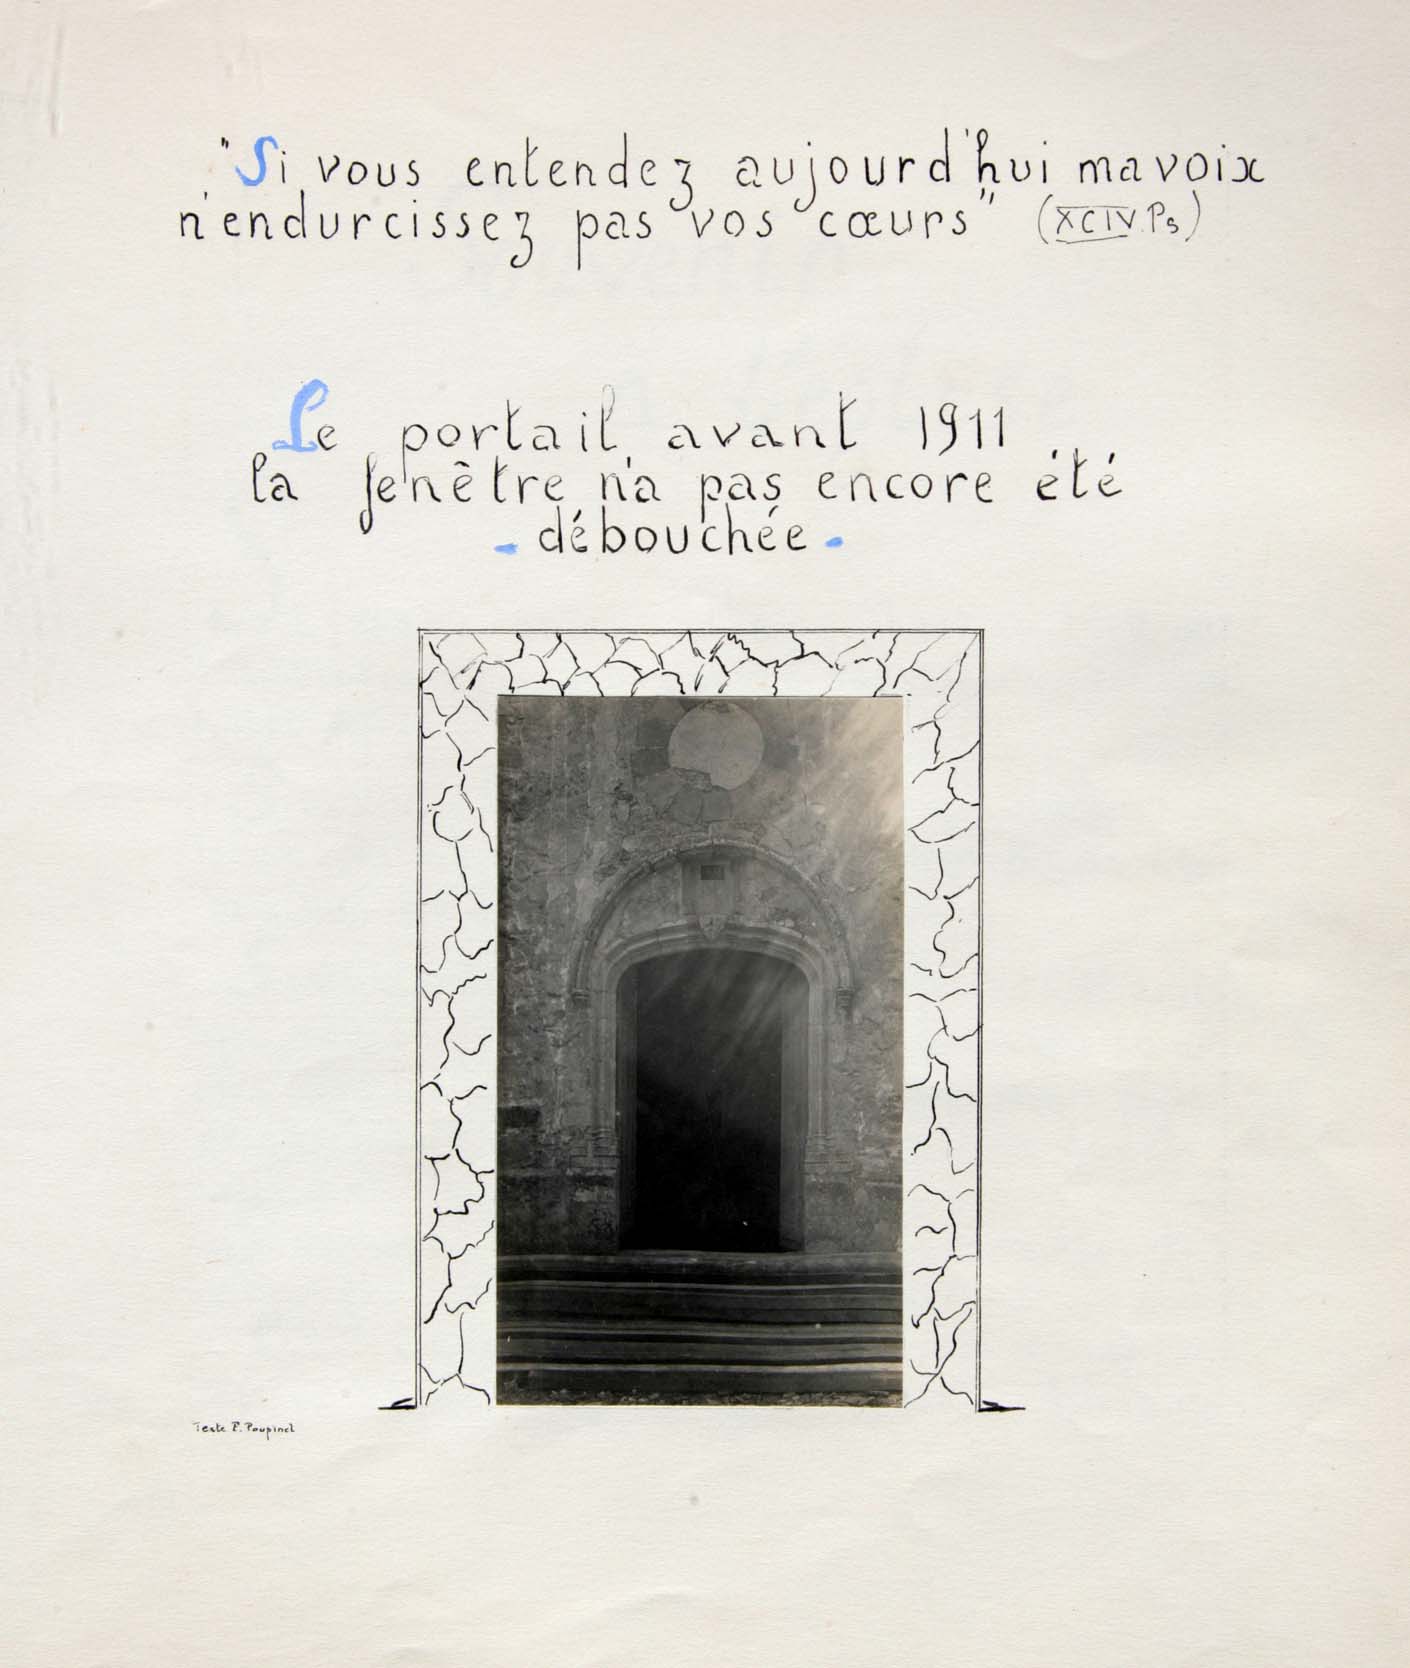 "Si vous entendez aujourd'hui ma voix
n'endurcissez pas vos cœurs" (XCIV. Ps)
Le portail avant 1911
la fenêtre n'a pas encore été
- débouchée -
Texte P. Poupinel